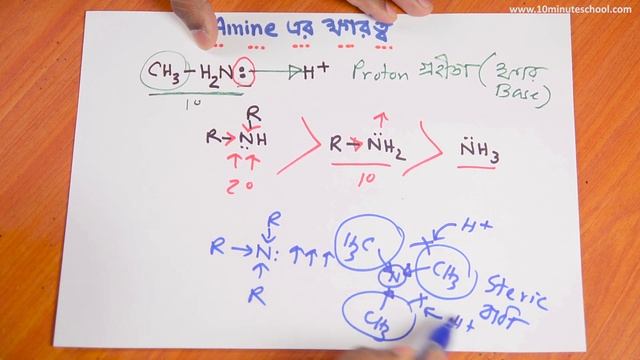 www.10minuteschool.com
Amine এর ক্ষারত্ব
CH3 – H2N: → H+ Proton গ্রহীতা (ক্ষার
1° Base)
R
R → N̈H > R → N̈H2 > N̈H3
2° 1°
R
R → N: ↑↑↑
R
H3C H+
N CH3
CH3 H+
Steric